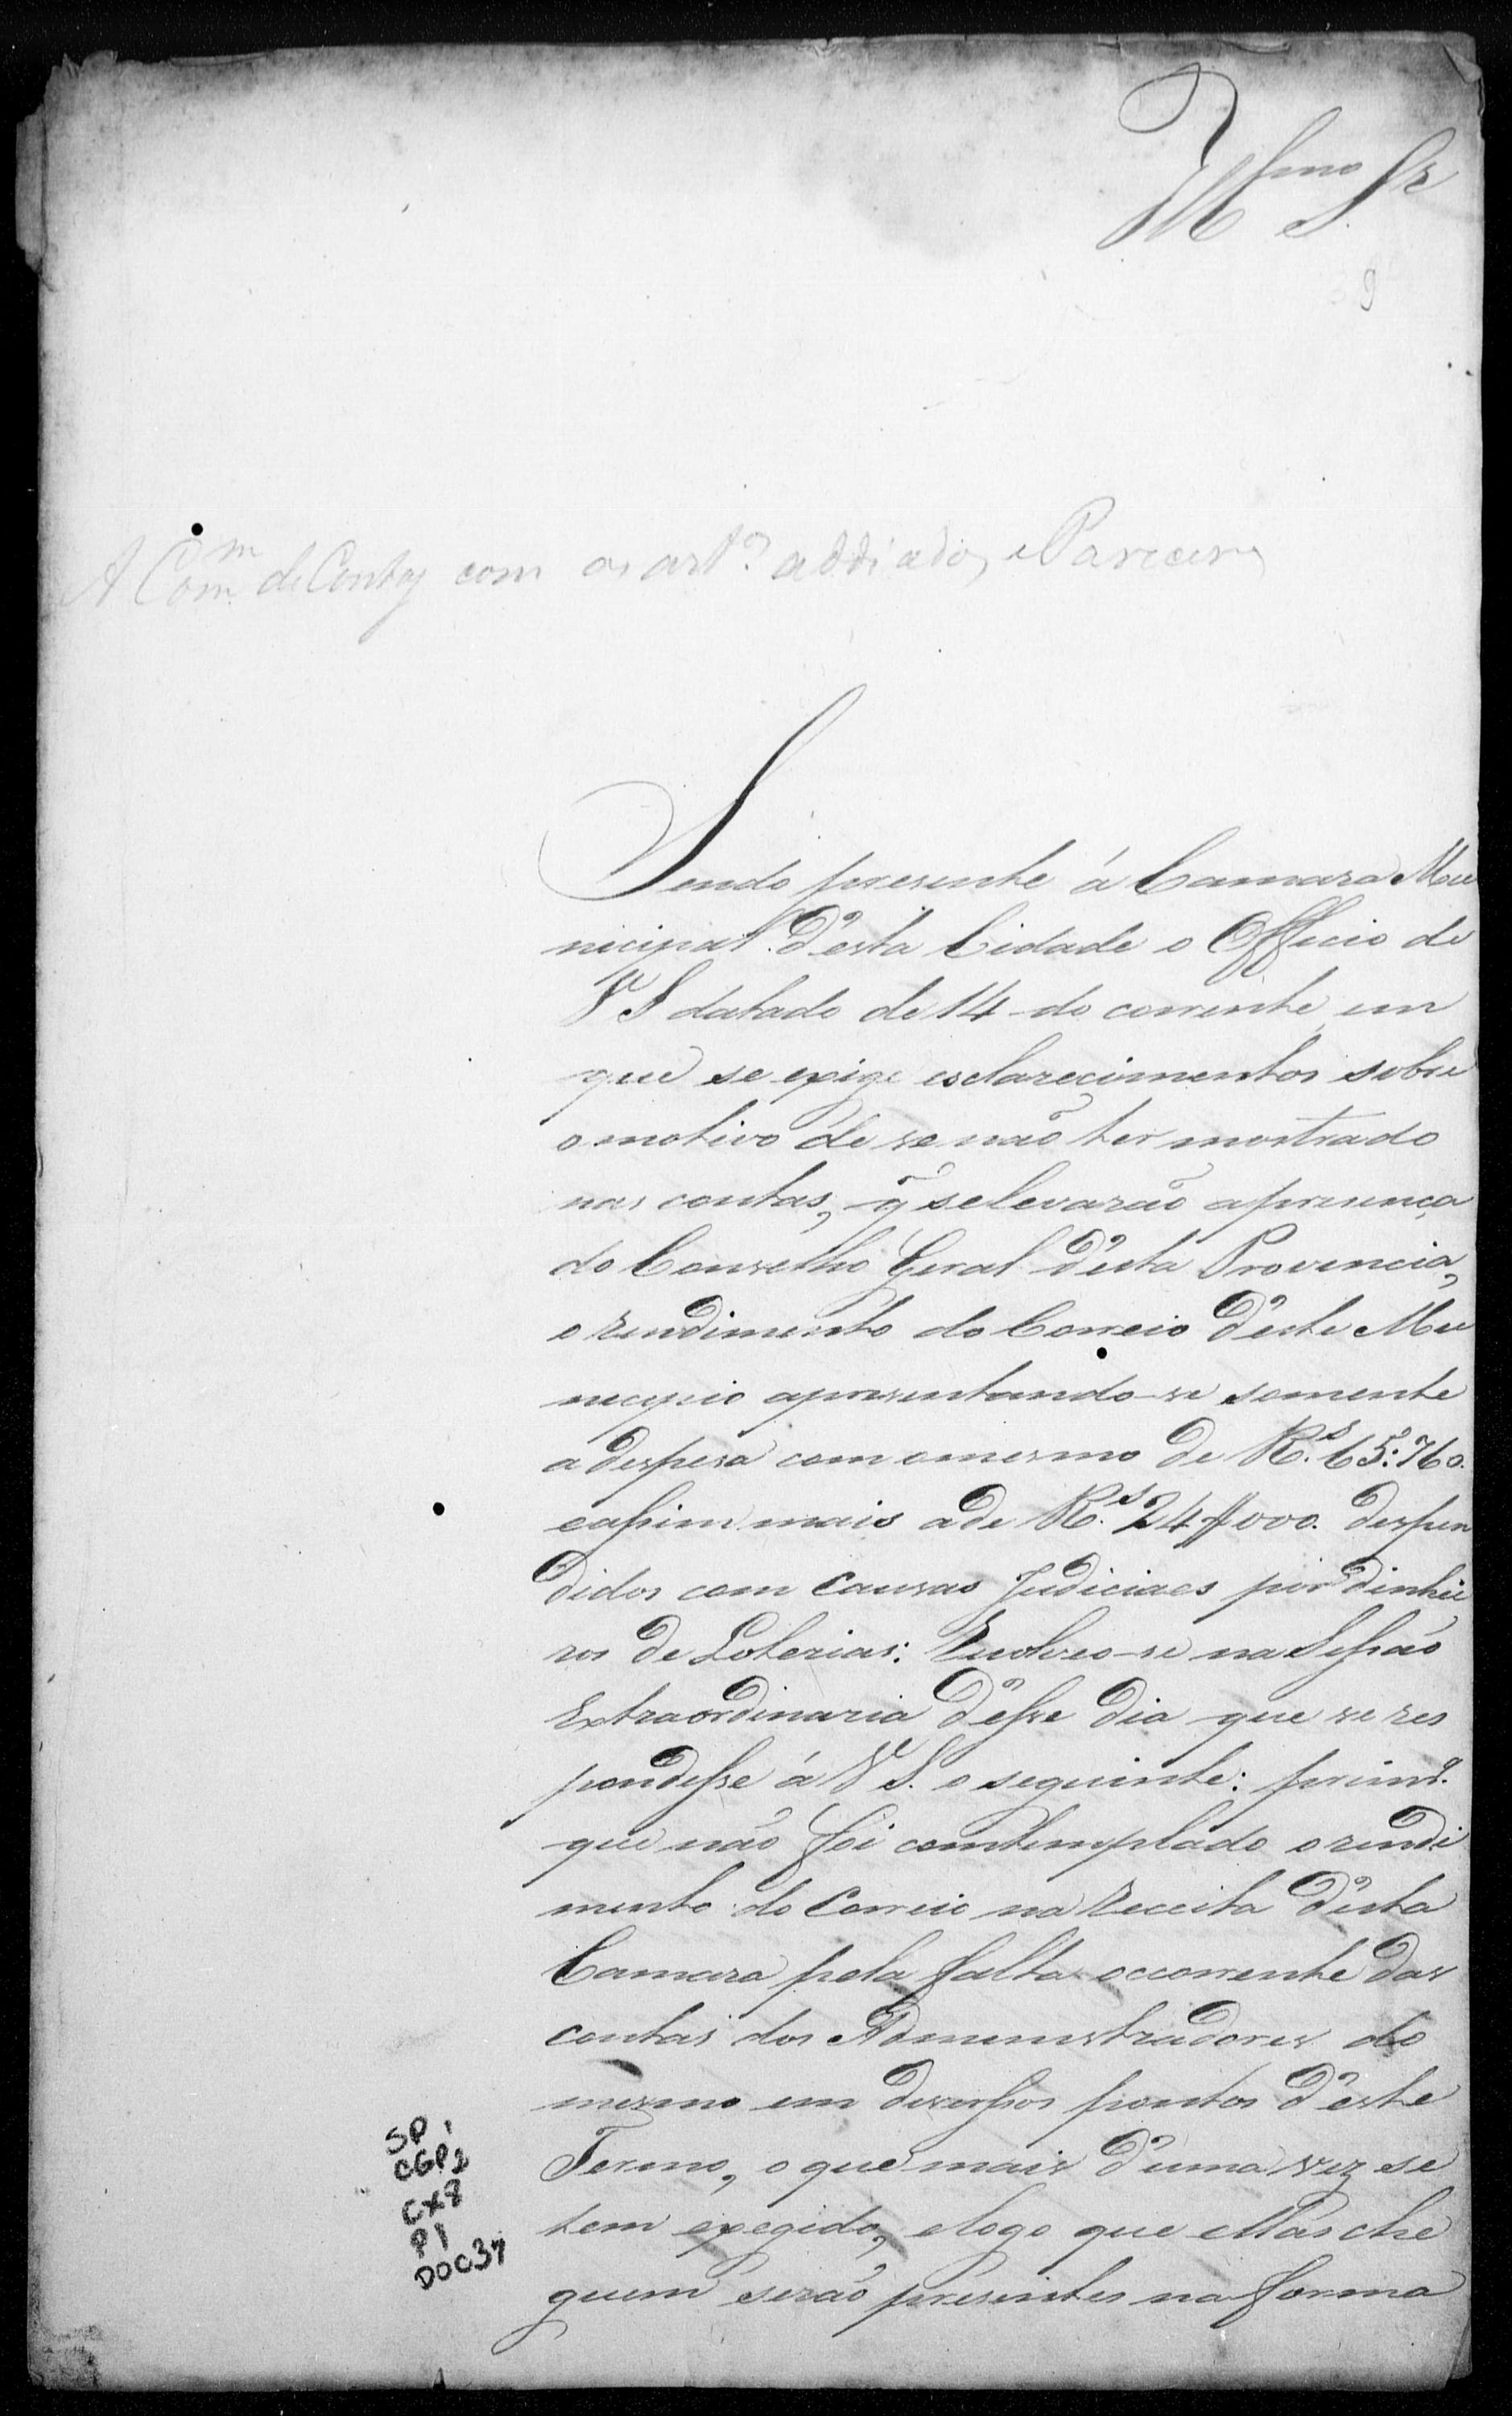 Illmo Sr.
9
A Comm. de Contas com os art.os addiados, e Parecer
Sendo presente á Camara Mu
nicipal d'esta Cidade o Officio de
V S datado de 14 do corrente, em
que se exige esclarecimentos sobre
o motivo de se não ter mostrado
nas contas, q̃ se levarão a presença
do Conselho Geral d'esta Provincia,
o rendimento do Correio d'este Mu
necipio apresentando-se somente
a despesa com o mesmo de R.s 65:760.
eassim mais a de R.s 24$000. despen
didos com Causas Judiciaes por dinhei
ros de Loterias: Rezolveo-se na Sessão
Extraordinaria d'esse dia que se res
pondesse á V S. o seguinte: prim.o
que não foi comtemplado o rendi
mento do Correio na Receita d'esta
Camara pela falta occorrente das
contas dos Admenistradores do
mesmo em deverssos pontos d'este
Termo, o que mais d'uma vez se
tem exegido, e logo que ellas che
guem serão presentes na forma
SP 1
CGP2
CX8
P1
DOC37